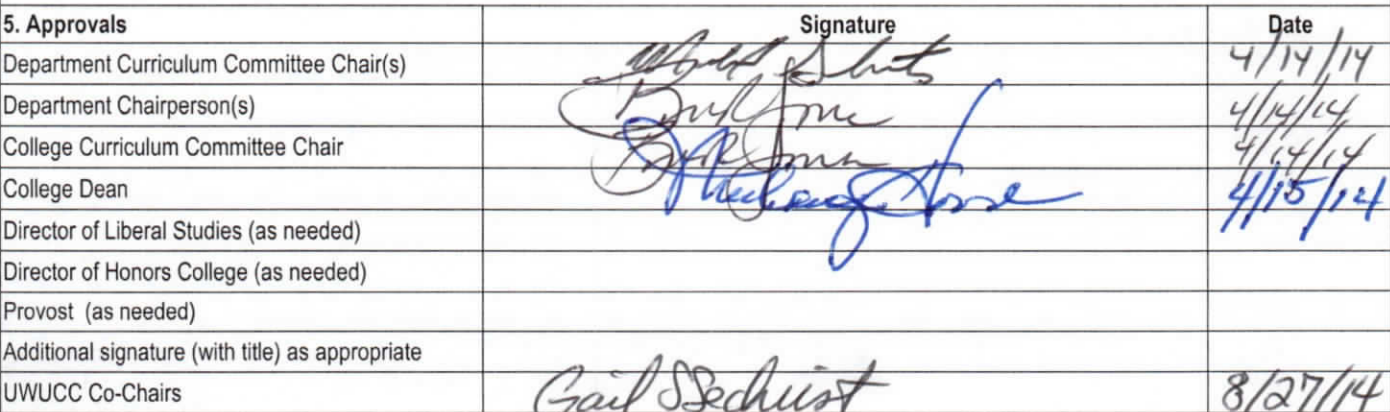 5. Approvals Signature Date
Department Curriculum Committee Chair(s) 4/14/14
Department Chairperson(s) 4/14/14
College Curriculum Committee Chair 4/14/14
College Dean 4/15/14
Director of Liberal Studies (as needed)
Director of Honors College (as needed)
Provost (as needed)
Additional signature (with title) as appropriate
UWUCC Co-Chairs Gail S Sechrist 8/27/14